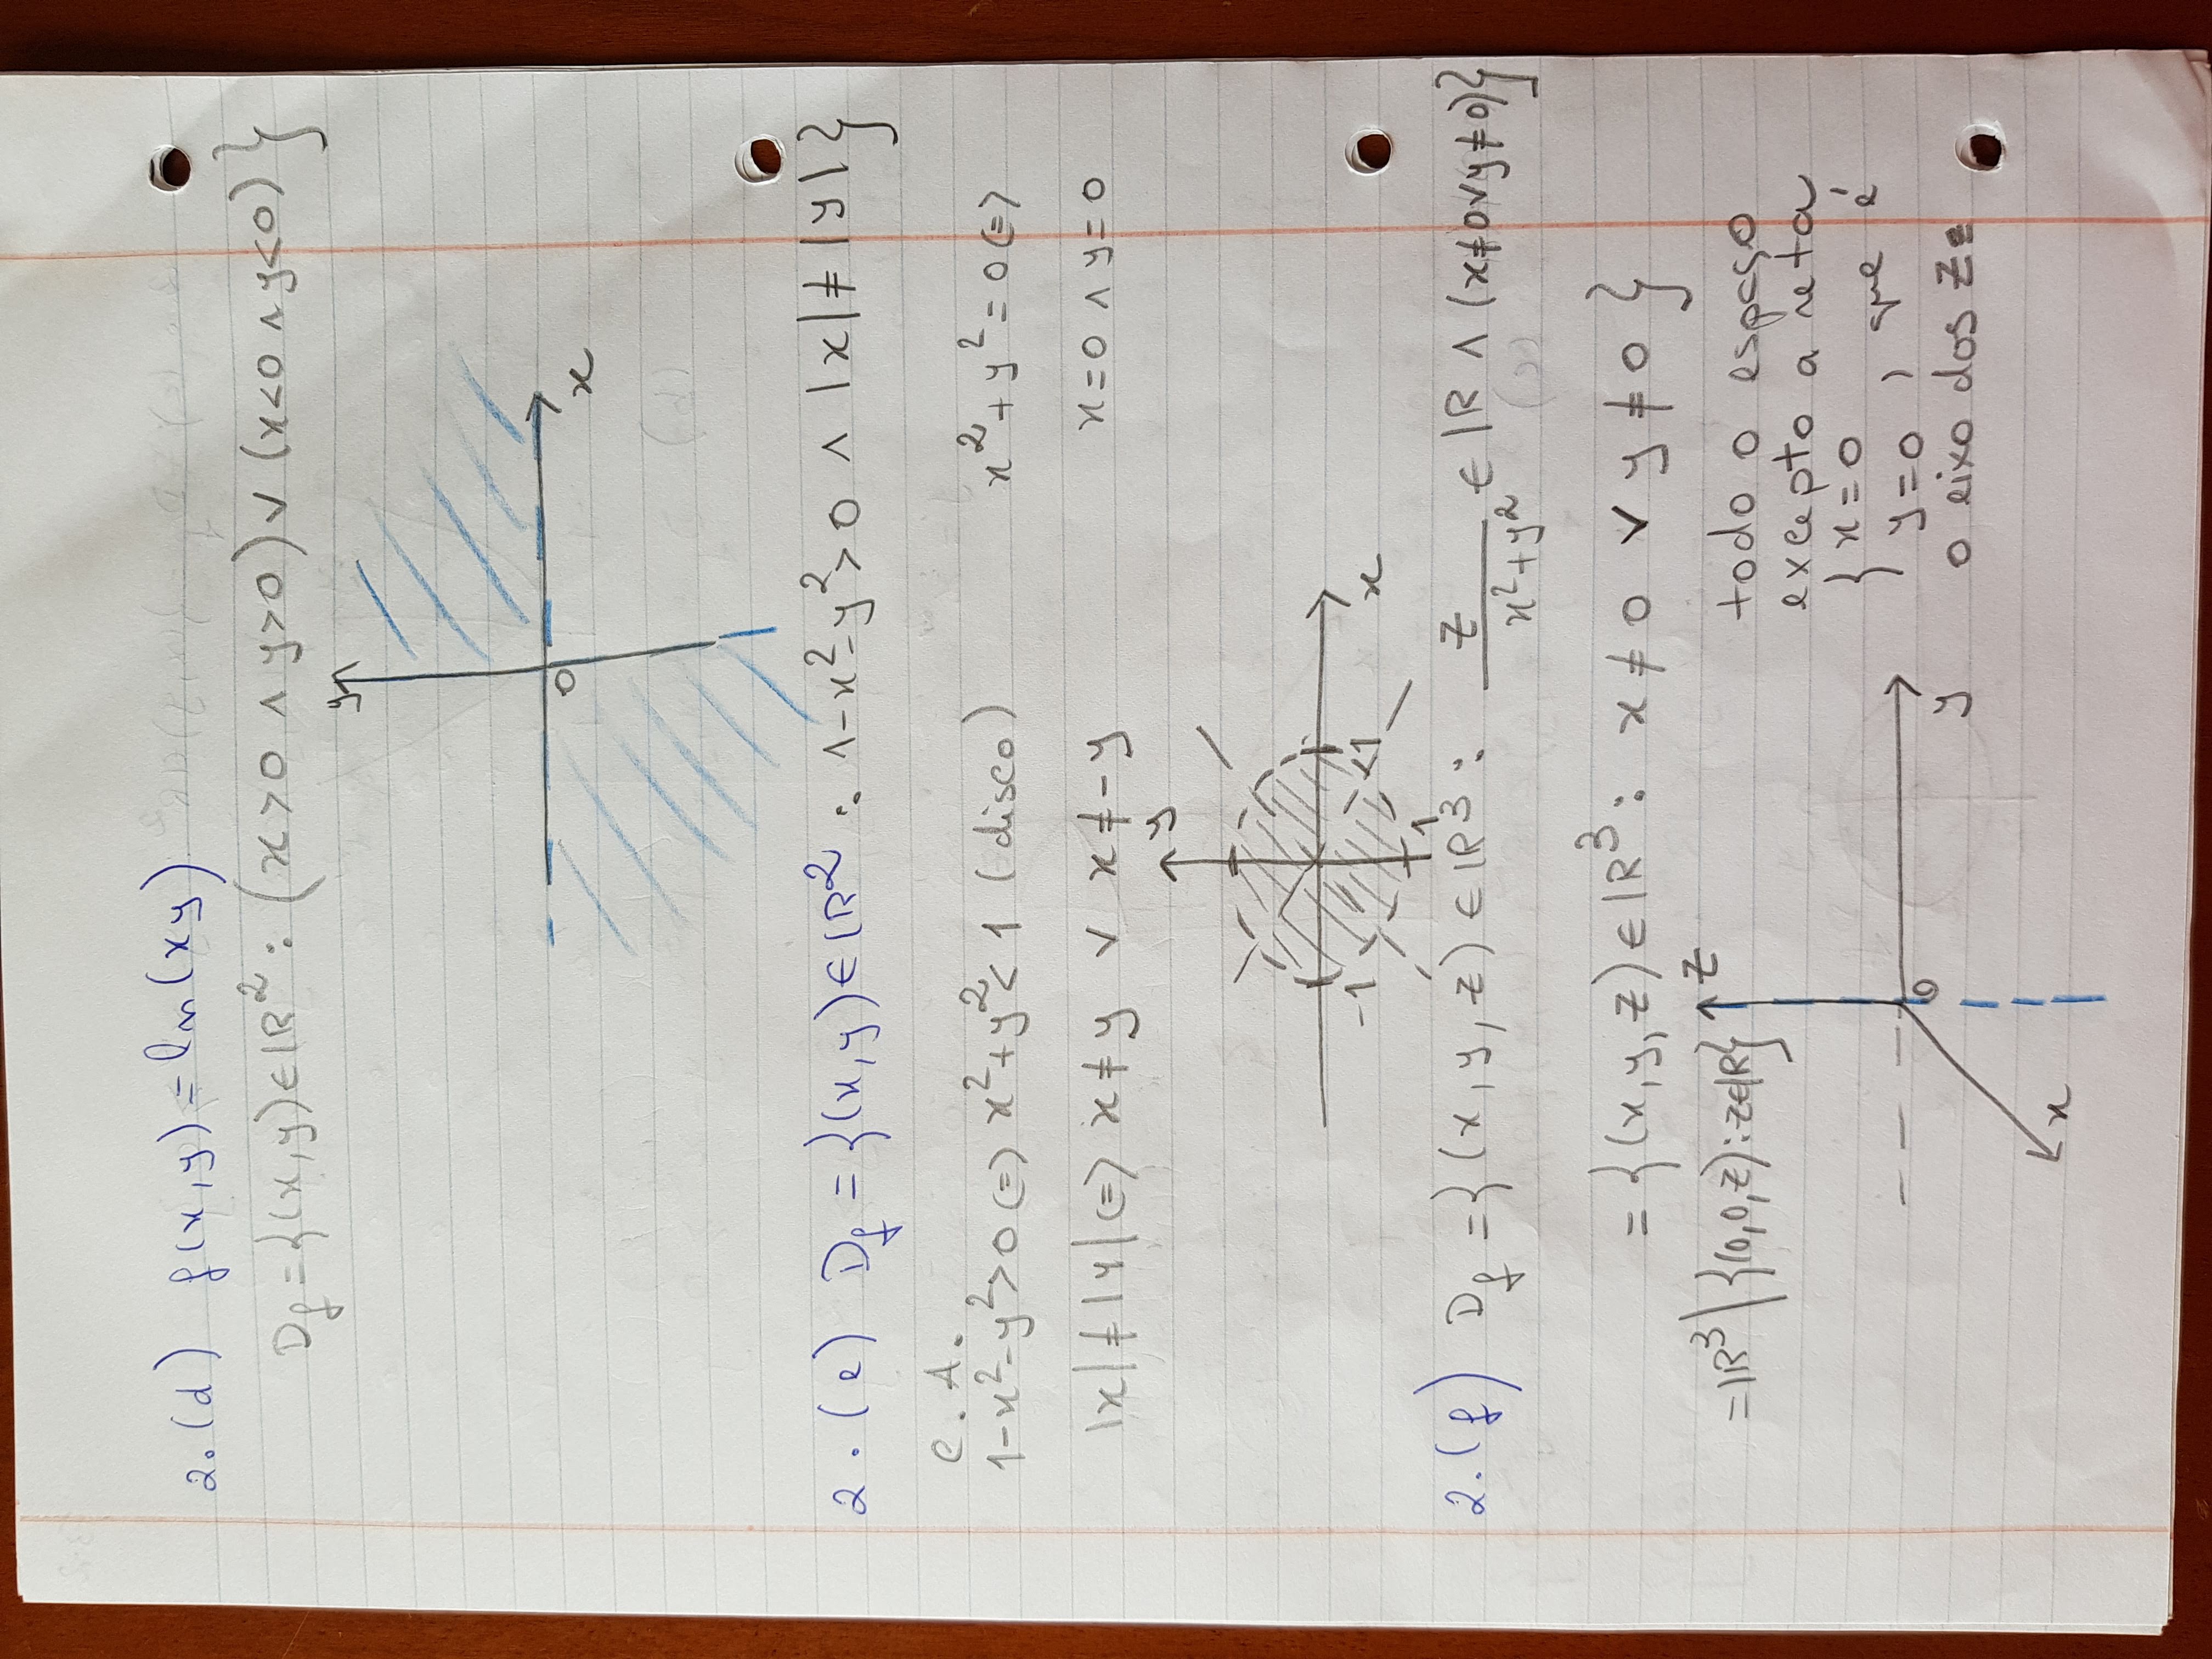 2. (d) f(x,y) = ln(xy)
D_f = {(x,y)∈ℝ² : (x>0 ∧ y>0) ∨ (x<0 ∧ y<0)}
y
0
x
2. (e) D_f = {(x,y)∈ℝ² : 1-x²-y²>0 ∧ |x|≠|y|}
C.A.
1-x²-y²>0 (=) x²+y²<1 (disco) x²+y²=0 (=)
|x|≠|y| (=) x≠y ∨ x≠-y x=0 ∧ y=0
y
-1 1 x
1
2. (f) D_f = {(x,y,z)∈ℝ³ : z/(x²+y²) ∈ ℝ ∧ (x≠0 ∨ y≠0)}
= {(x,y,z)∈ℝ³ : x≠0 ∨ y≠0}
=ℝ³ \ {(0,0,z) : z∈ℝ} z
todo o espaço
excepto a reta
{ x=0
y=0 , que é
o eixo dos zz
0
y
x